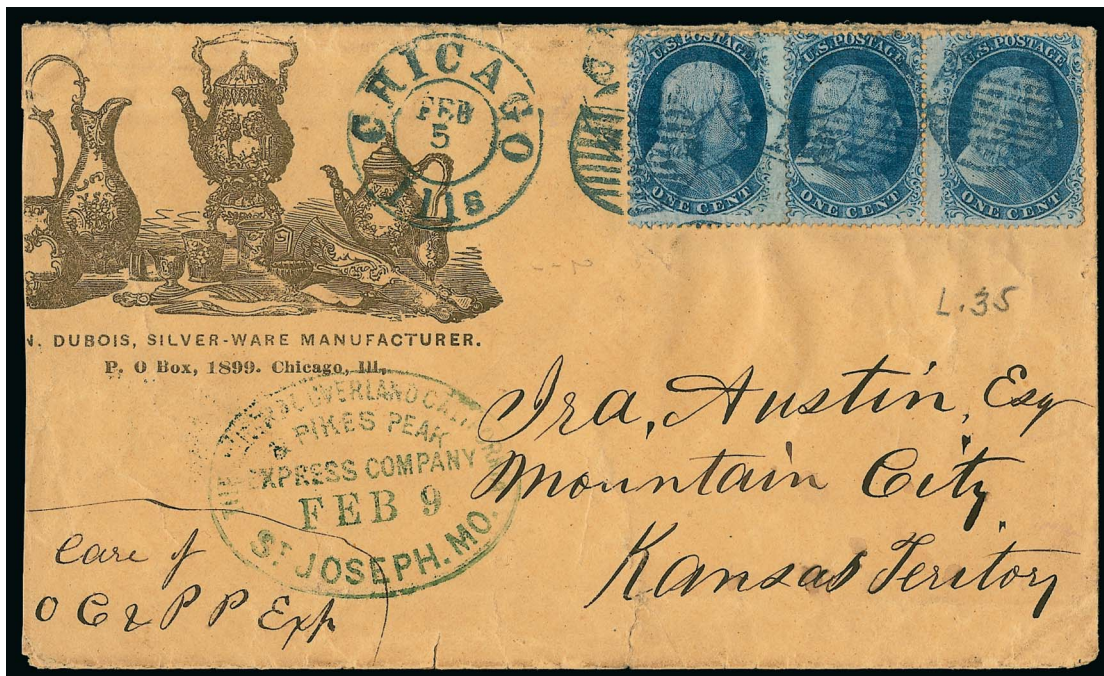 CHICAGO
FEB
5
Ills
U.S. POSTAGE
ONE CENT
U.S. POSTAGE
ONE CENT
U.S. POSTAGE
ONE CENT
L.35
N. DUBOIS, SILVER-WARE MANUFACTURER.
P. O Box, 1899. Chicago, Ill,
OVERLAND
& PIKES PEAK
EXPRESS COMPANY
FEB 9
ST JOSEPH. MO.
Ira, Austin, Esq
Mountain City
Kansas Teritory
Care of
O C & P P Exp